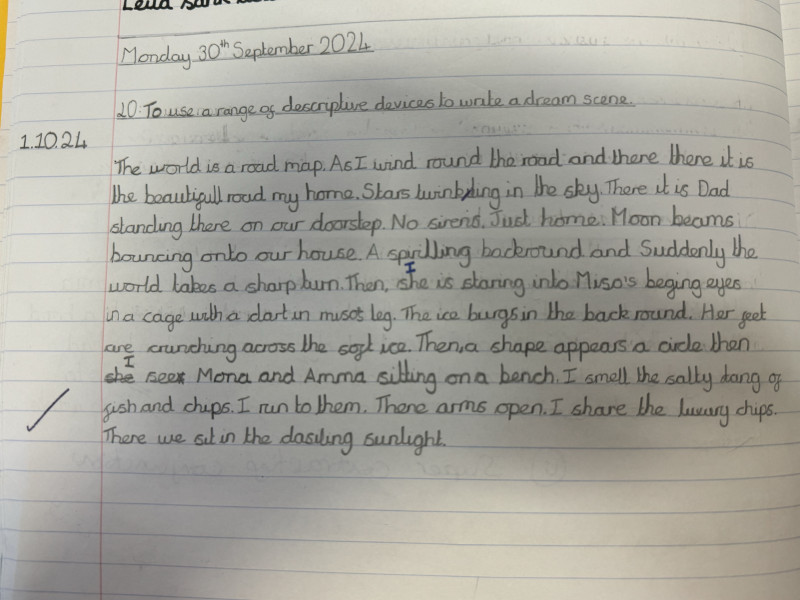 Leila
Monday 30th September 2024
LO: To use a range of descriptive devices to write a dream scene.
1.10.24
The world is a road map. As I wind round the road and there there it is
the beautifull road my home. Stars twinkling in the sky. There it is Dad
standing there on our doorstep. No sirens. Just home. Moon beams
bouncing onto our house. A spirilling backround and Suddenly the
I
world takes a sharp turn. Then, she is staring into Miso's beging eyes
in a cage with a dart in misos leg. The ice burgs in the back round. Her feet
are crunching across the soft ice. Then, a shape appears a circle then
I
she sees Mona and Amma sitting on a bench. I smell the salty tang of
fish and chips. I run to them. There arms open. I share the luxury chips.
There we sit in the dasiling sunlight.